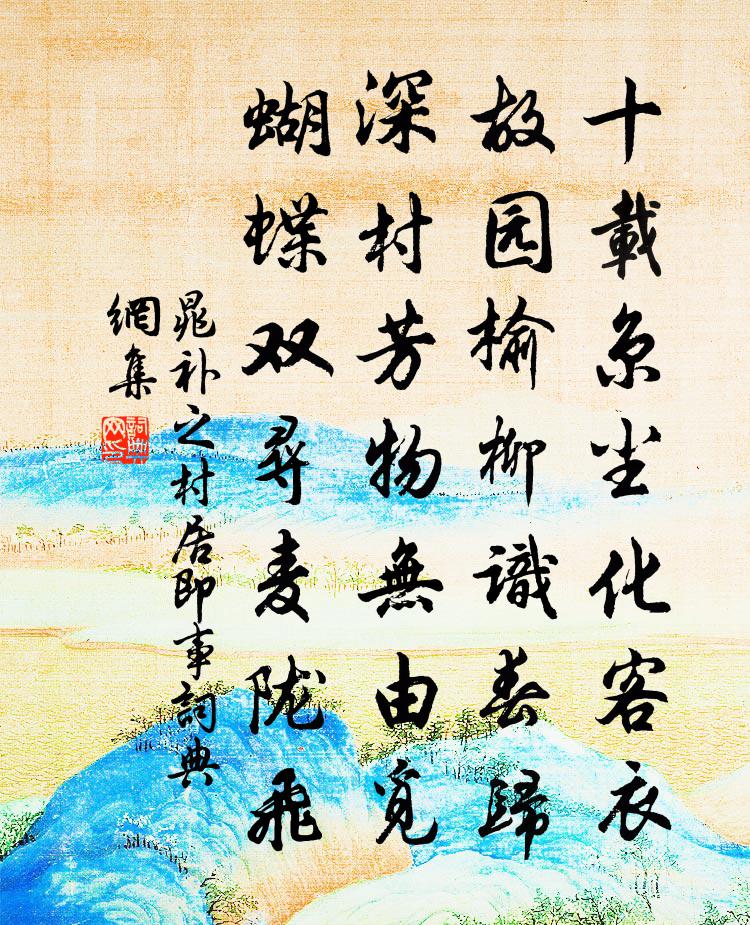 十載京塵化客衣
故园榆柳識春歸
深村芳物無由覓
蝴蝶双尋麦陇飛
晁补之村居即事詞典
網集